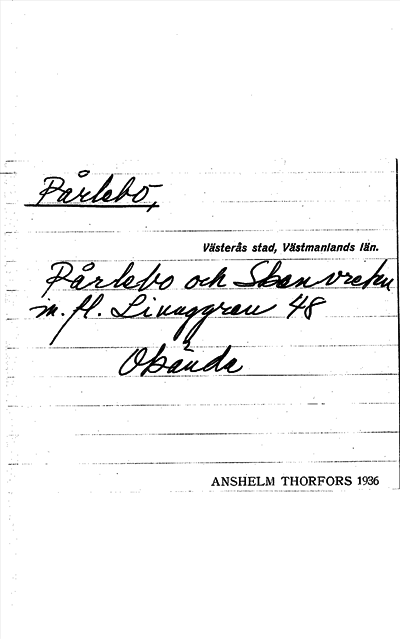 Pårlebo,
Västerås stad, Västmanlands län.
Pårlebo och
m. fl. Linnggren 48
Okända
ANSHELM THORFORS 1936